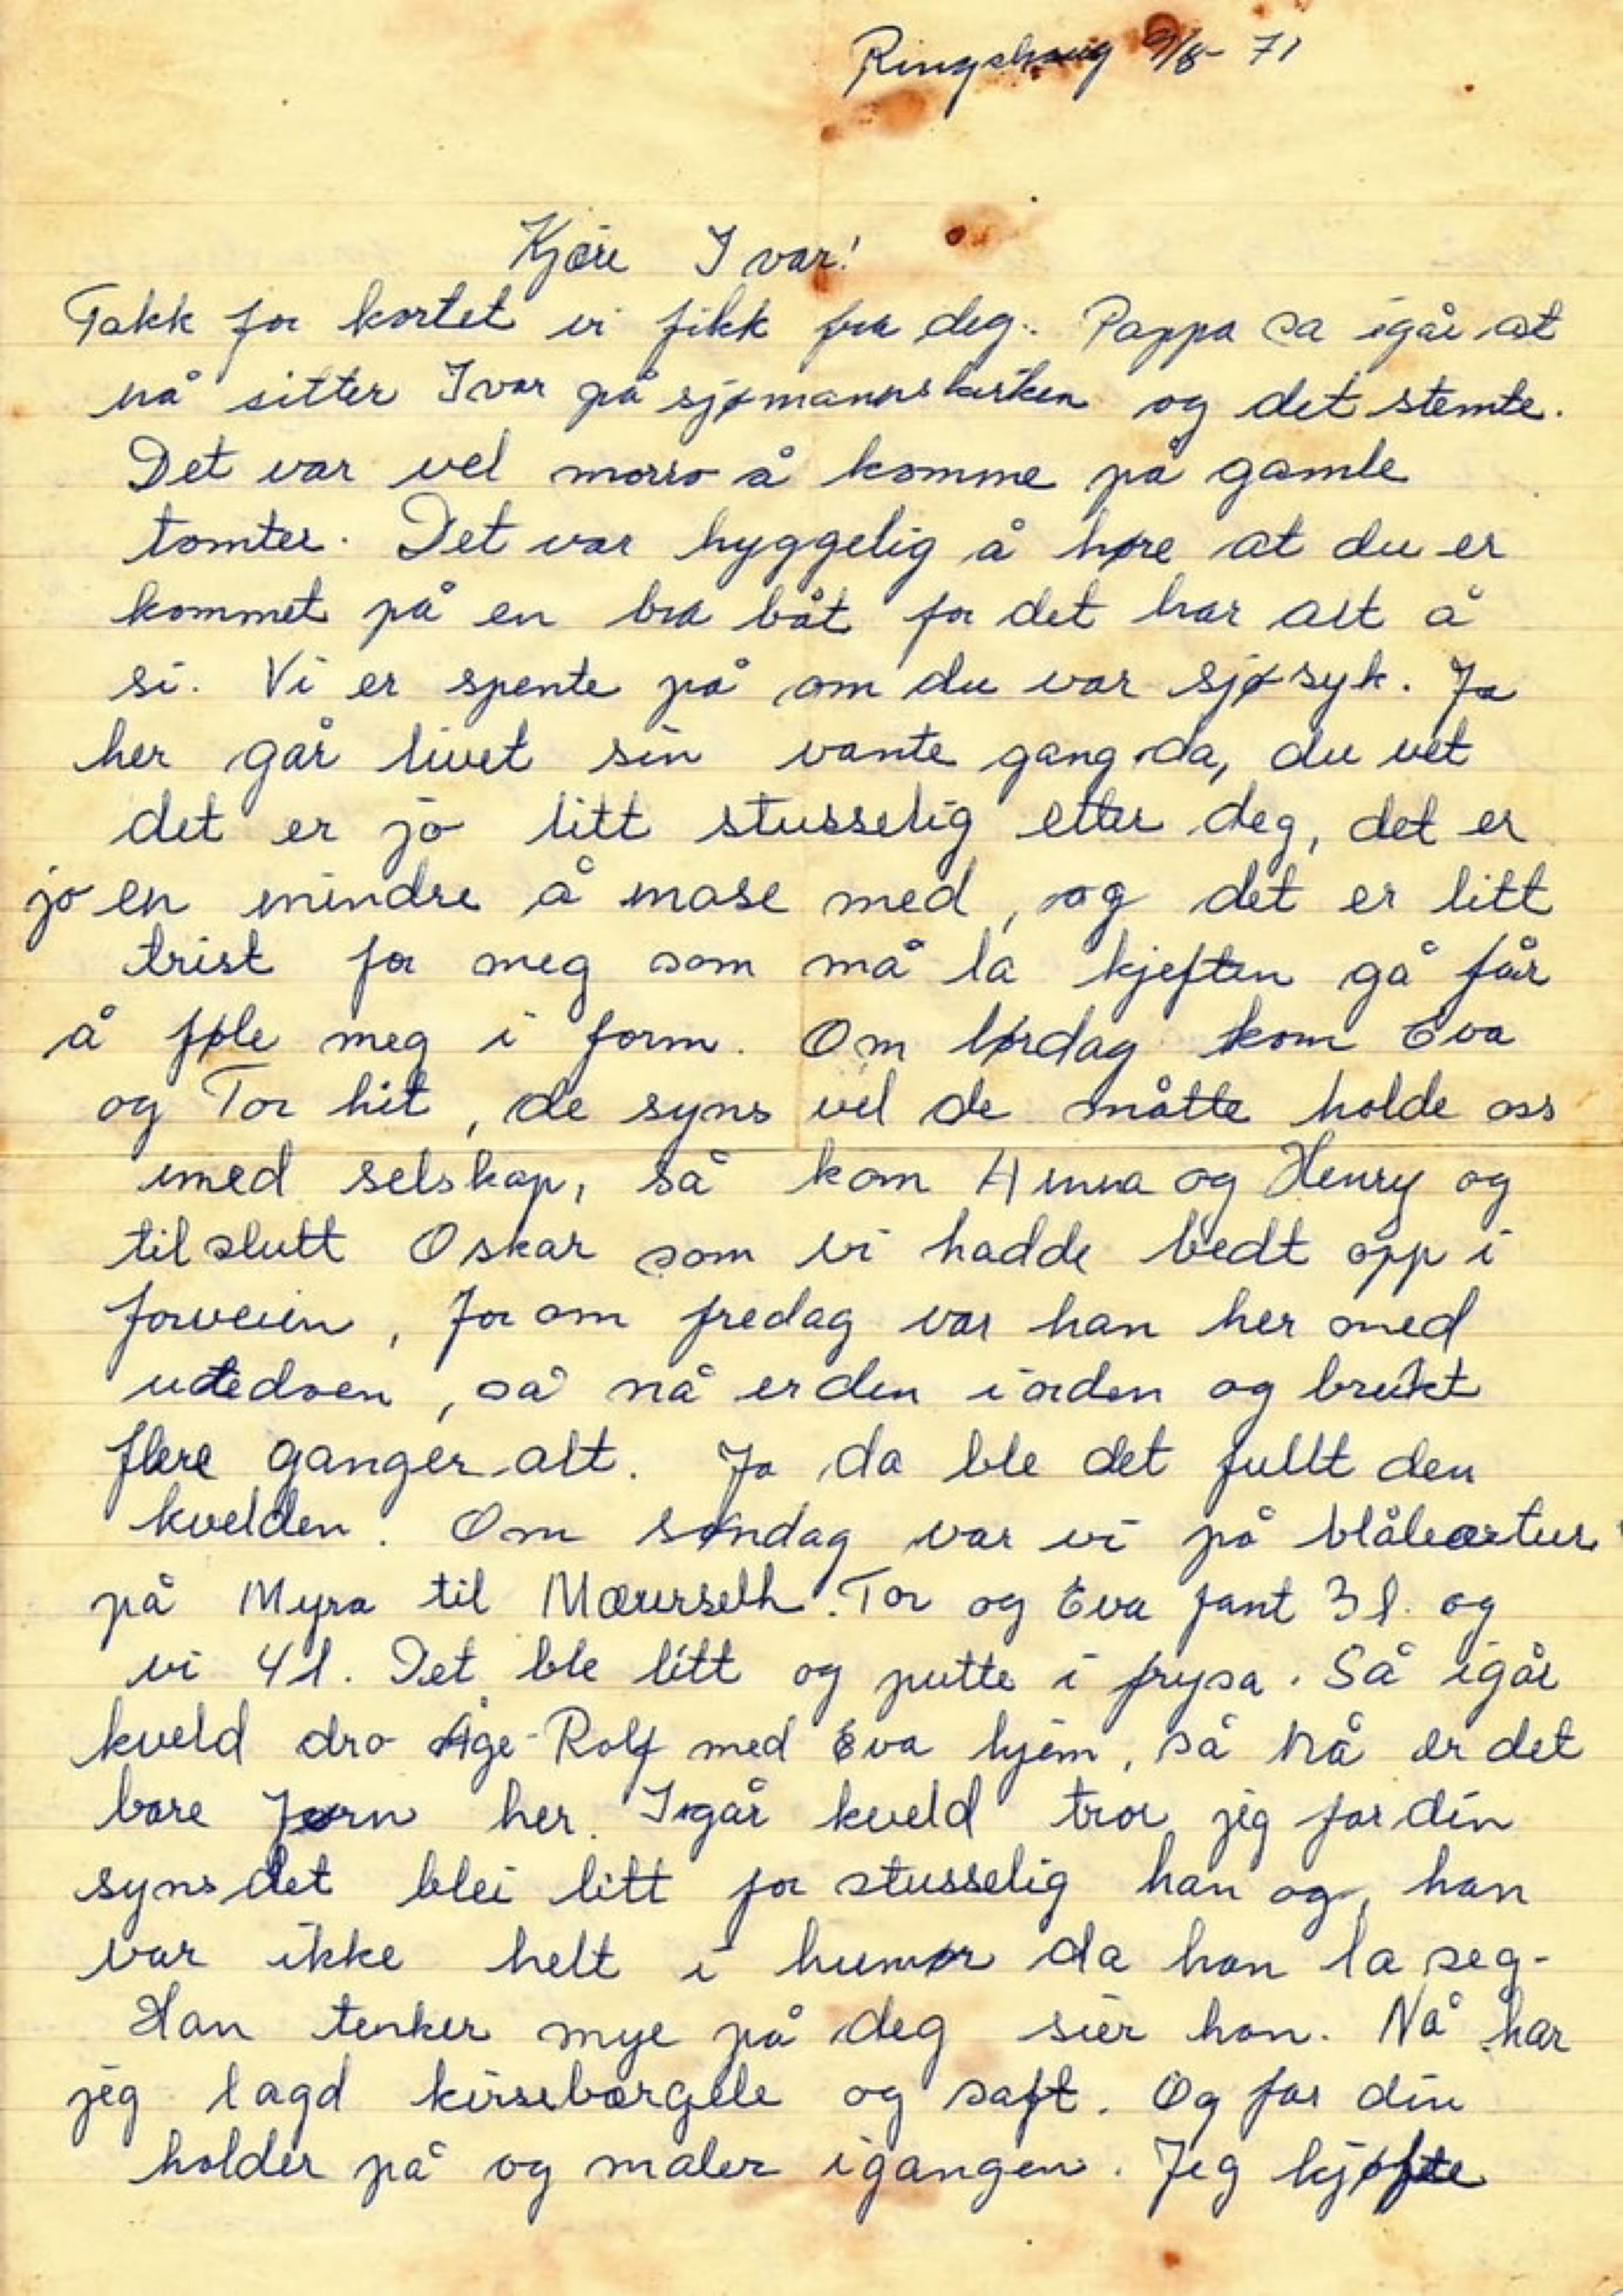 Ringshaug 9/8- 71
Kjære Ivar!
Takk for kortet vi fikk fra deg. Pappa sa igår at
nå sitter Ivar på sjømannskirken og det stemte.
Det var vel morro å komme på gamle
tomter. Det var hyggelig å høre at du er
kommet på en bra båt for det har alt å
si. Vi er spente på om du var sjøsyk. Ja
her går livet sin vante gang da, du vet
det er jo litt stusselig etter deg, det er
jo en mindre å mase med, og det er litt
trist for meg som må la kjeften gå får
å føle meg i form. Om lørdag kom Eva
og Tor hit, de syns vel de måtte holde oss
med selskap, så kom Anna og Henry og
tilslutt Oskar som vi hadde bedt opp i
forveien, for om fredag var han her med
utedoen, så nå er den iorden og brukt
flere ganger alt. Ja da ble det fullt den
kvelden. Om søndag var vi på blåbærtur
på Myra til. Tor og Eva fant 3 l. og
vi 4 l. Det ble litt og putte i frysa. Så igår
kveld dro Åge-Rolf med Eva hjem, så nå er det
bare Jørn her. Igår kveld tror jeg far din
syns det blei litt for stusselig han og, han
var ikke helt i humør da han la seg.
Han tenker mye på deg sier han. Nå har
jeg lagd kirsebærgele og saft. Og far din
holder på og maler igangen. Jeg kjøfte